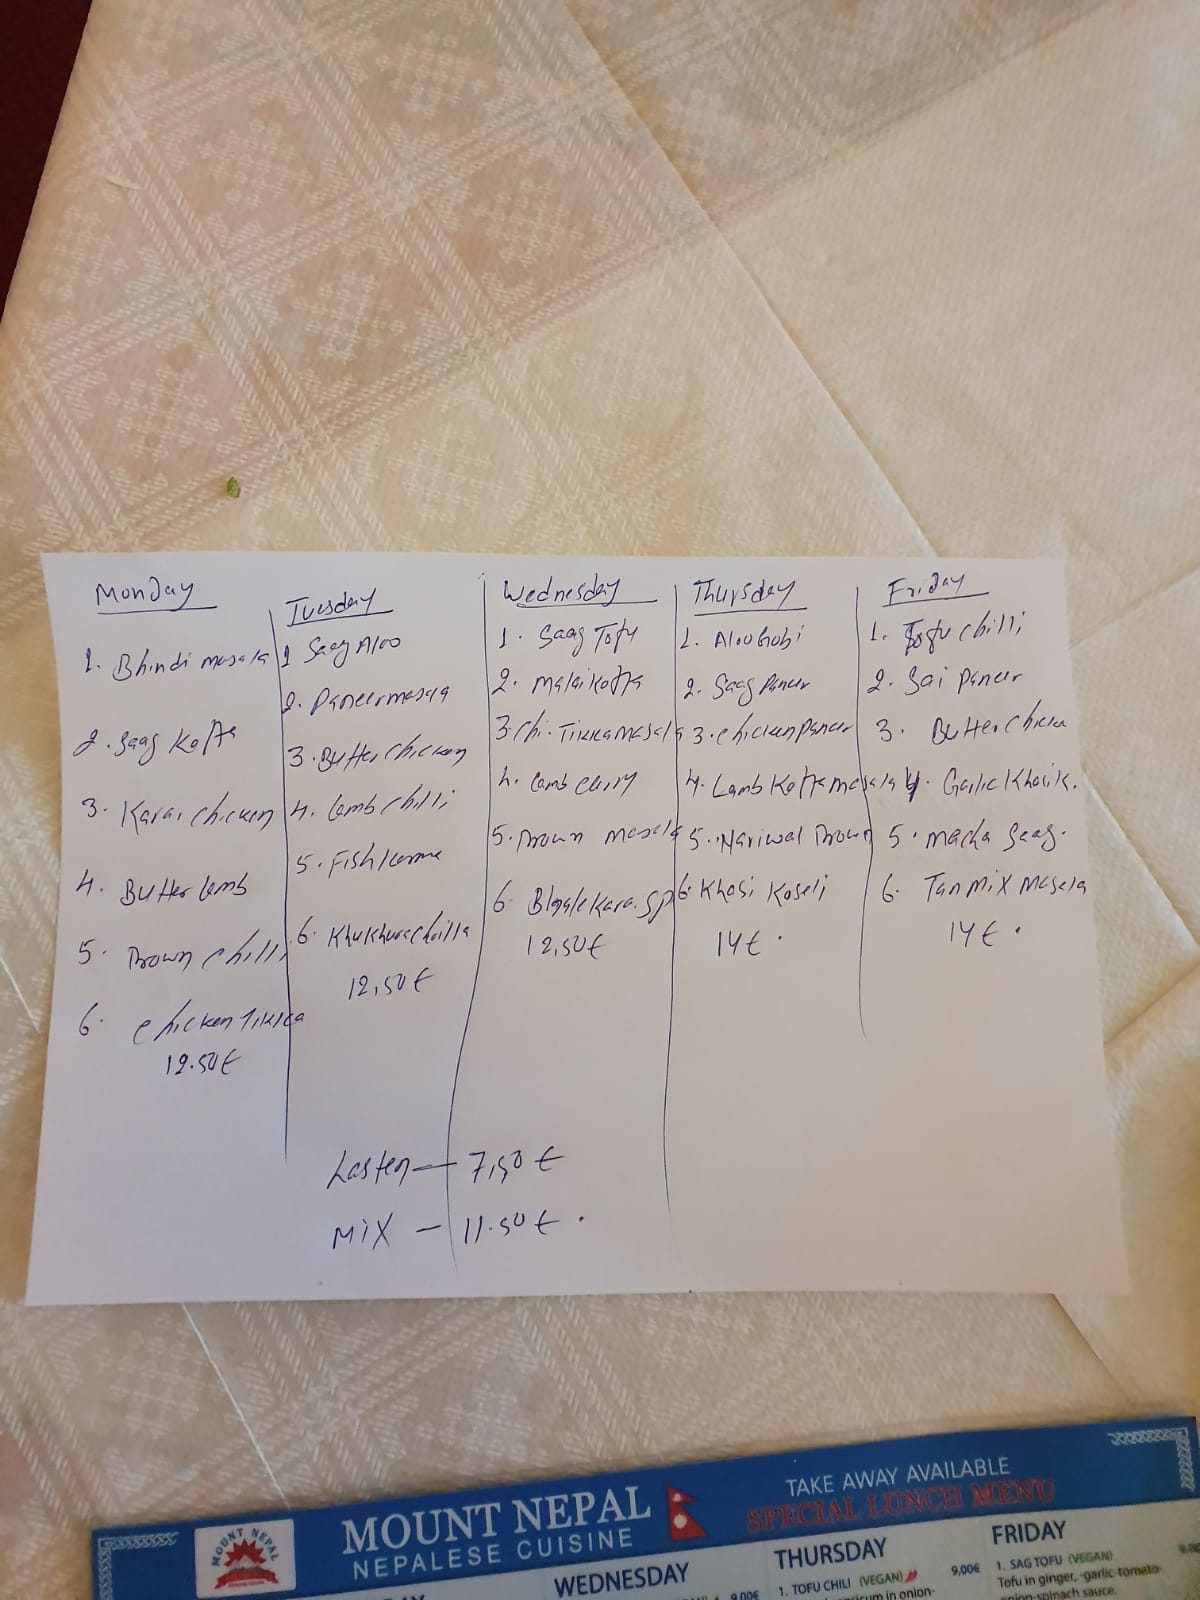 Monday
1. Bhindi masala
2. Saag Kofta
3. Karai chicken
4. Butter lamb
5. Prown chilli
6. chicken Tikka
12.50€
Tuesday
1 Saag Aloo
2. Paneer masala
3. Butter chicken
4. Lamb chilli
5. Fish korma
6. Khukhura
12,50€
Wednesday
1. Saag Tofu
2. malai kofta
3 chi. Tikka masala
4. Lamb curry
5. Prown masala
6.
12,50€
Thursday
1. Aloo Gobi
2. Saag Paneer
3. chicken paneer
4. Lamb Kofta masala
5. Nariwal Prown
6. Khasi Koseli
14€.
Friday
1. Tofu chilli
2. Sai Paneer
3. Butter Chicken
4. Garlic
5. macha Saag.
6. Tan Mix Masala
14€.
Lasten — 7,50€
Mix — 11.50€.
MOUNT NEPAL
MOUNT NEPAL
NEPALESE CUISINE
TAKE AWAY AVAILABLE
SPECIAL LUNCH MENU
WEDNESDAY
9,00€
THURSDAY
1. TOFU CHILI (VEGAN)
9,00€
in onion-
FRIDAY
1. SAG TOFU (VEGAN)
Tofu in ginger, -garlic-tomato-
onion-spinach sauce.